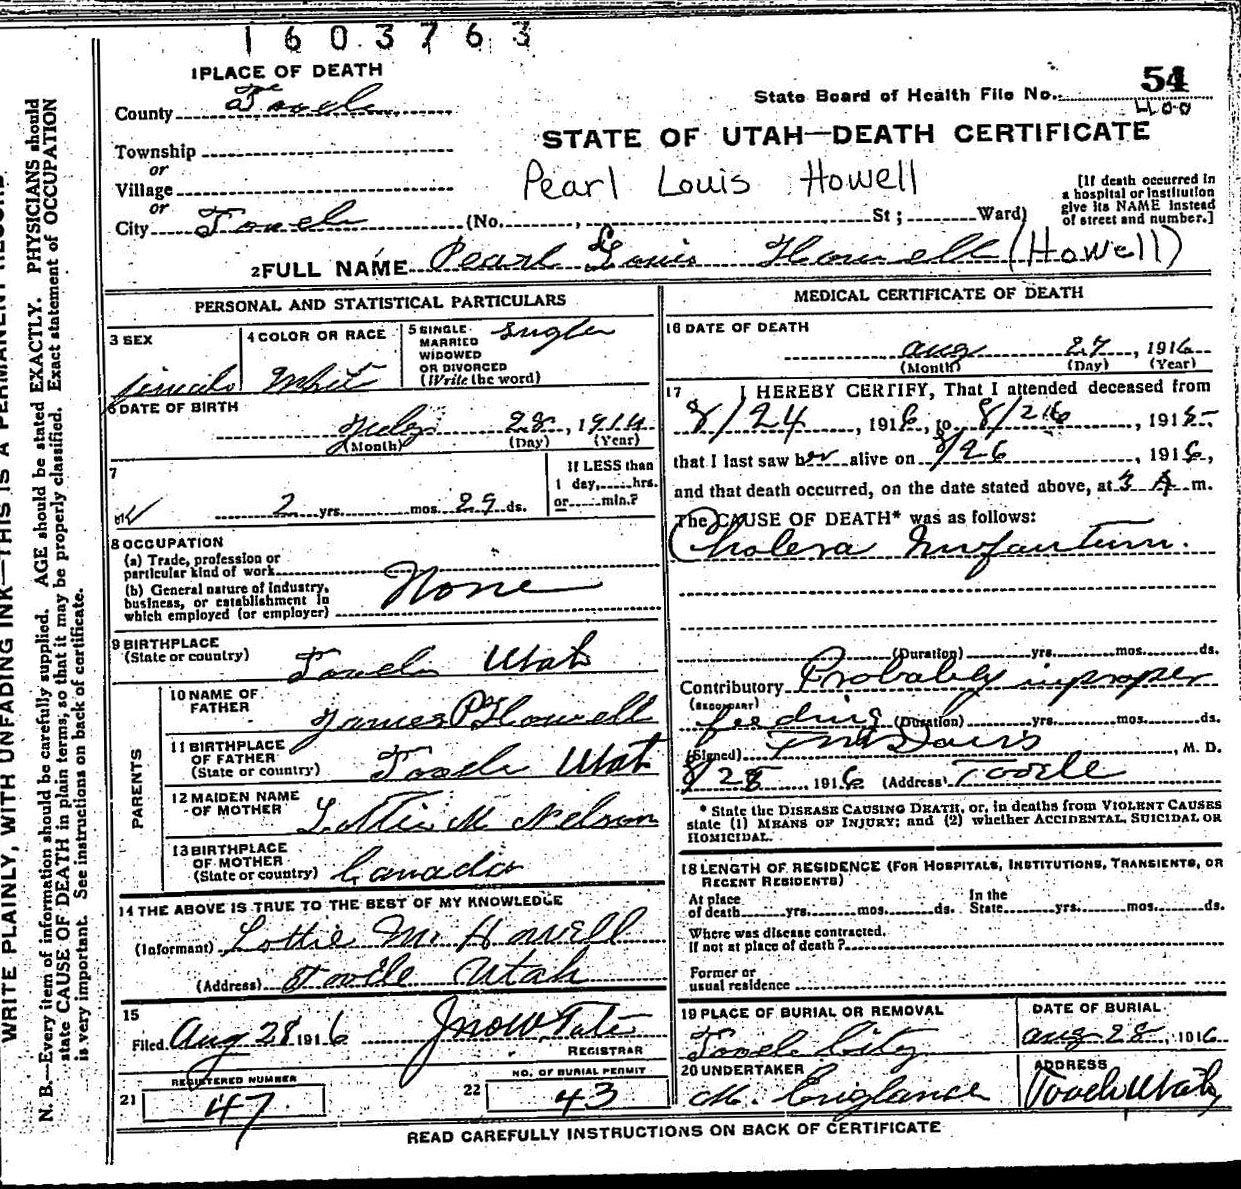 1603763
1 PLACE OF DEATH
County Tooele
Township
or
Village
or
City Tooele (No. , St ; Ward)
State Board of Health File No. 54
400
STATE OF UTAH—DEATH CERTIFICATE
Pearl Louis Howell
[If death occurred in
a hospital or institution
give its NAME instead
of street and number.]
2 FULL NAME Pearl Louis Howell (Howell)
PERSONAL AND STATISTICAL PARTICULARS
3 SEX
female
4 COLOR OR RACE
White
5 SINGLE
MARRIED
WIDOWED
OR DIVORCED
(Write the word)
Single
6 DATE OF BIRTH
July 28, 1914
(Month) (Day) (Year)
7
2 yrs. mos. 29 ds.
If LESS than
1 day, hrs.
or min.?
8 OCCUPATION
(a) Trade, profession or
particular kind of work
(b) General nature of industry,
business, or establishment in
which employed (or employer)
None
9 BIRTHPLACE
(State or country)
Tooele Utah
PARENTS
10 NAME OF
FATHER
James P Howell
11 BIRTHPLACE
OF FATHER
(State or country)
Tooele Utah
12 MAIDEN NAME
OF MOTHER
Lottie M Nelson
13 BIRTHPLACE
OF MOTHER
(State or country)
Canada
14 THE ABOVE IS TRUE TO THE BEST OF MY KNOWLEDGE
(Informant) Lottie M. Howell
(Address) Tooele Utah
15
Filed Aug 28 1916 Jno W Tate
REGISTRAR
REGISTERED NUMBER
21 47
NO. OF BURIAL PERMIT
22 43
MEDICAL CERTIFICATE OF DEATH
16 DATE OF DEATH
Aug 27, 1916
(Month) (Day) (Year)
17 I HEREBY CERTIFY, That I attended deceased from
8/24, 1916, to 8/26, 191
that I last saw her alive on 8/26, 1916,
and that death occurred, on the date stated above, at 3 A m.
The CAUSE OF DEATH* was as follows:
Cholera Infantum.
(Duration) yrs. mos. ds.
Contributory Probably improper
(SECONDARY)
feeding (Duration) yrs. mos. ds.
(Signed) Davis, M. D.
8/28, 1916 (Address) Tooele
* State the DISEASE CAUSING DEATH, or, in deaths from VIOLENT CAUSES
state (1) MEANS OF INJURY; and (2) whether ACCIDENTAL, SUICIDAL OR
HOMICIDAL.
18 LENGTH OF RESIDENCE (FOR HOSPITALS, INSTITUTIONS, TRANSIENTS, OR
RECENT RESIDENTS)
At place
of death yrs. mos. ds.
In the
State yrs. mos. ds.
Where was disease contracted,
if not at place of death?
Former or
usual residence
19 PLACE OF BURIAL OR REMOVAL
Tooele City
DATE OF BURIAL
Aug 28, 1916
20 UNDERTAKER
M. England
ADDRESS
Tooele Utah
READ CAREFULLY INSTRUCTIONS ON BACK OF CERTIFICATE
WRITE PLAINLY, WITH UNFADING INK—THIS IS A PERMANENT RECORD
N. B.—Every item of information should be carefully supplied. AGE should be stated EXACTLY. PHYSICIANS should
state CAUSE OF DEATH in plain terms, so that it may be properly classified. Exact statement of OCCUPATION
is very important. See instructions on back of certificate.